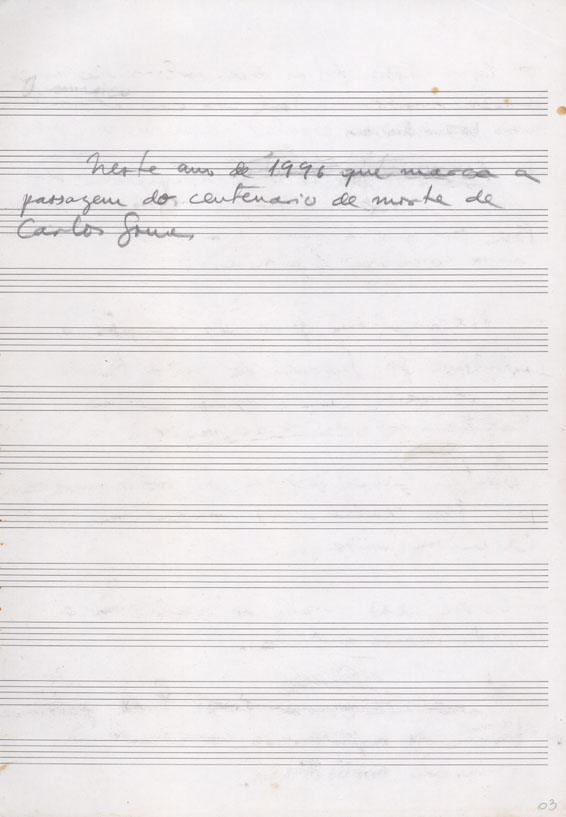 Neste ano de 1996 que marca a
passagem dos centenario de morte de
Carlos Gomes
03